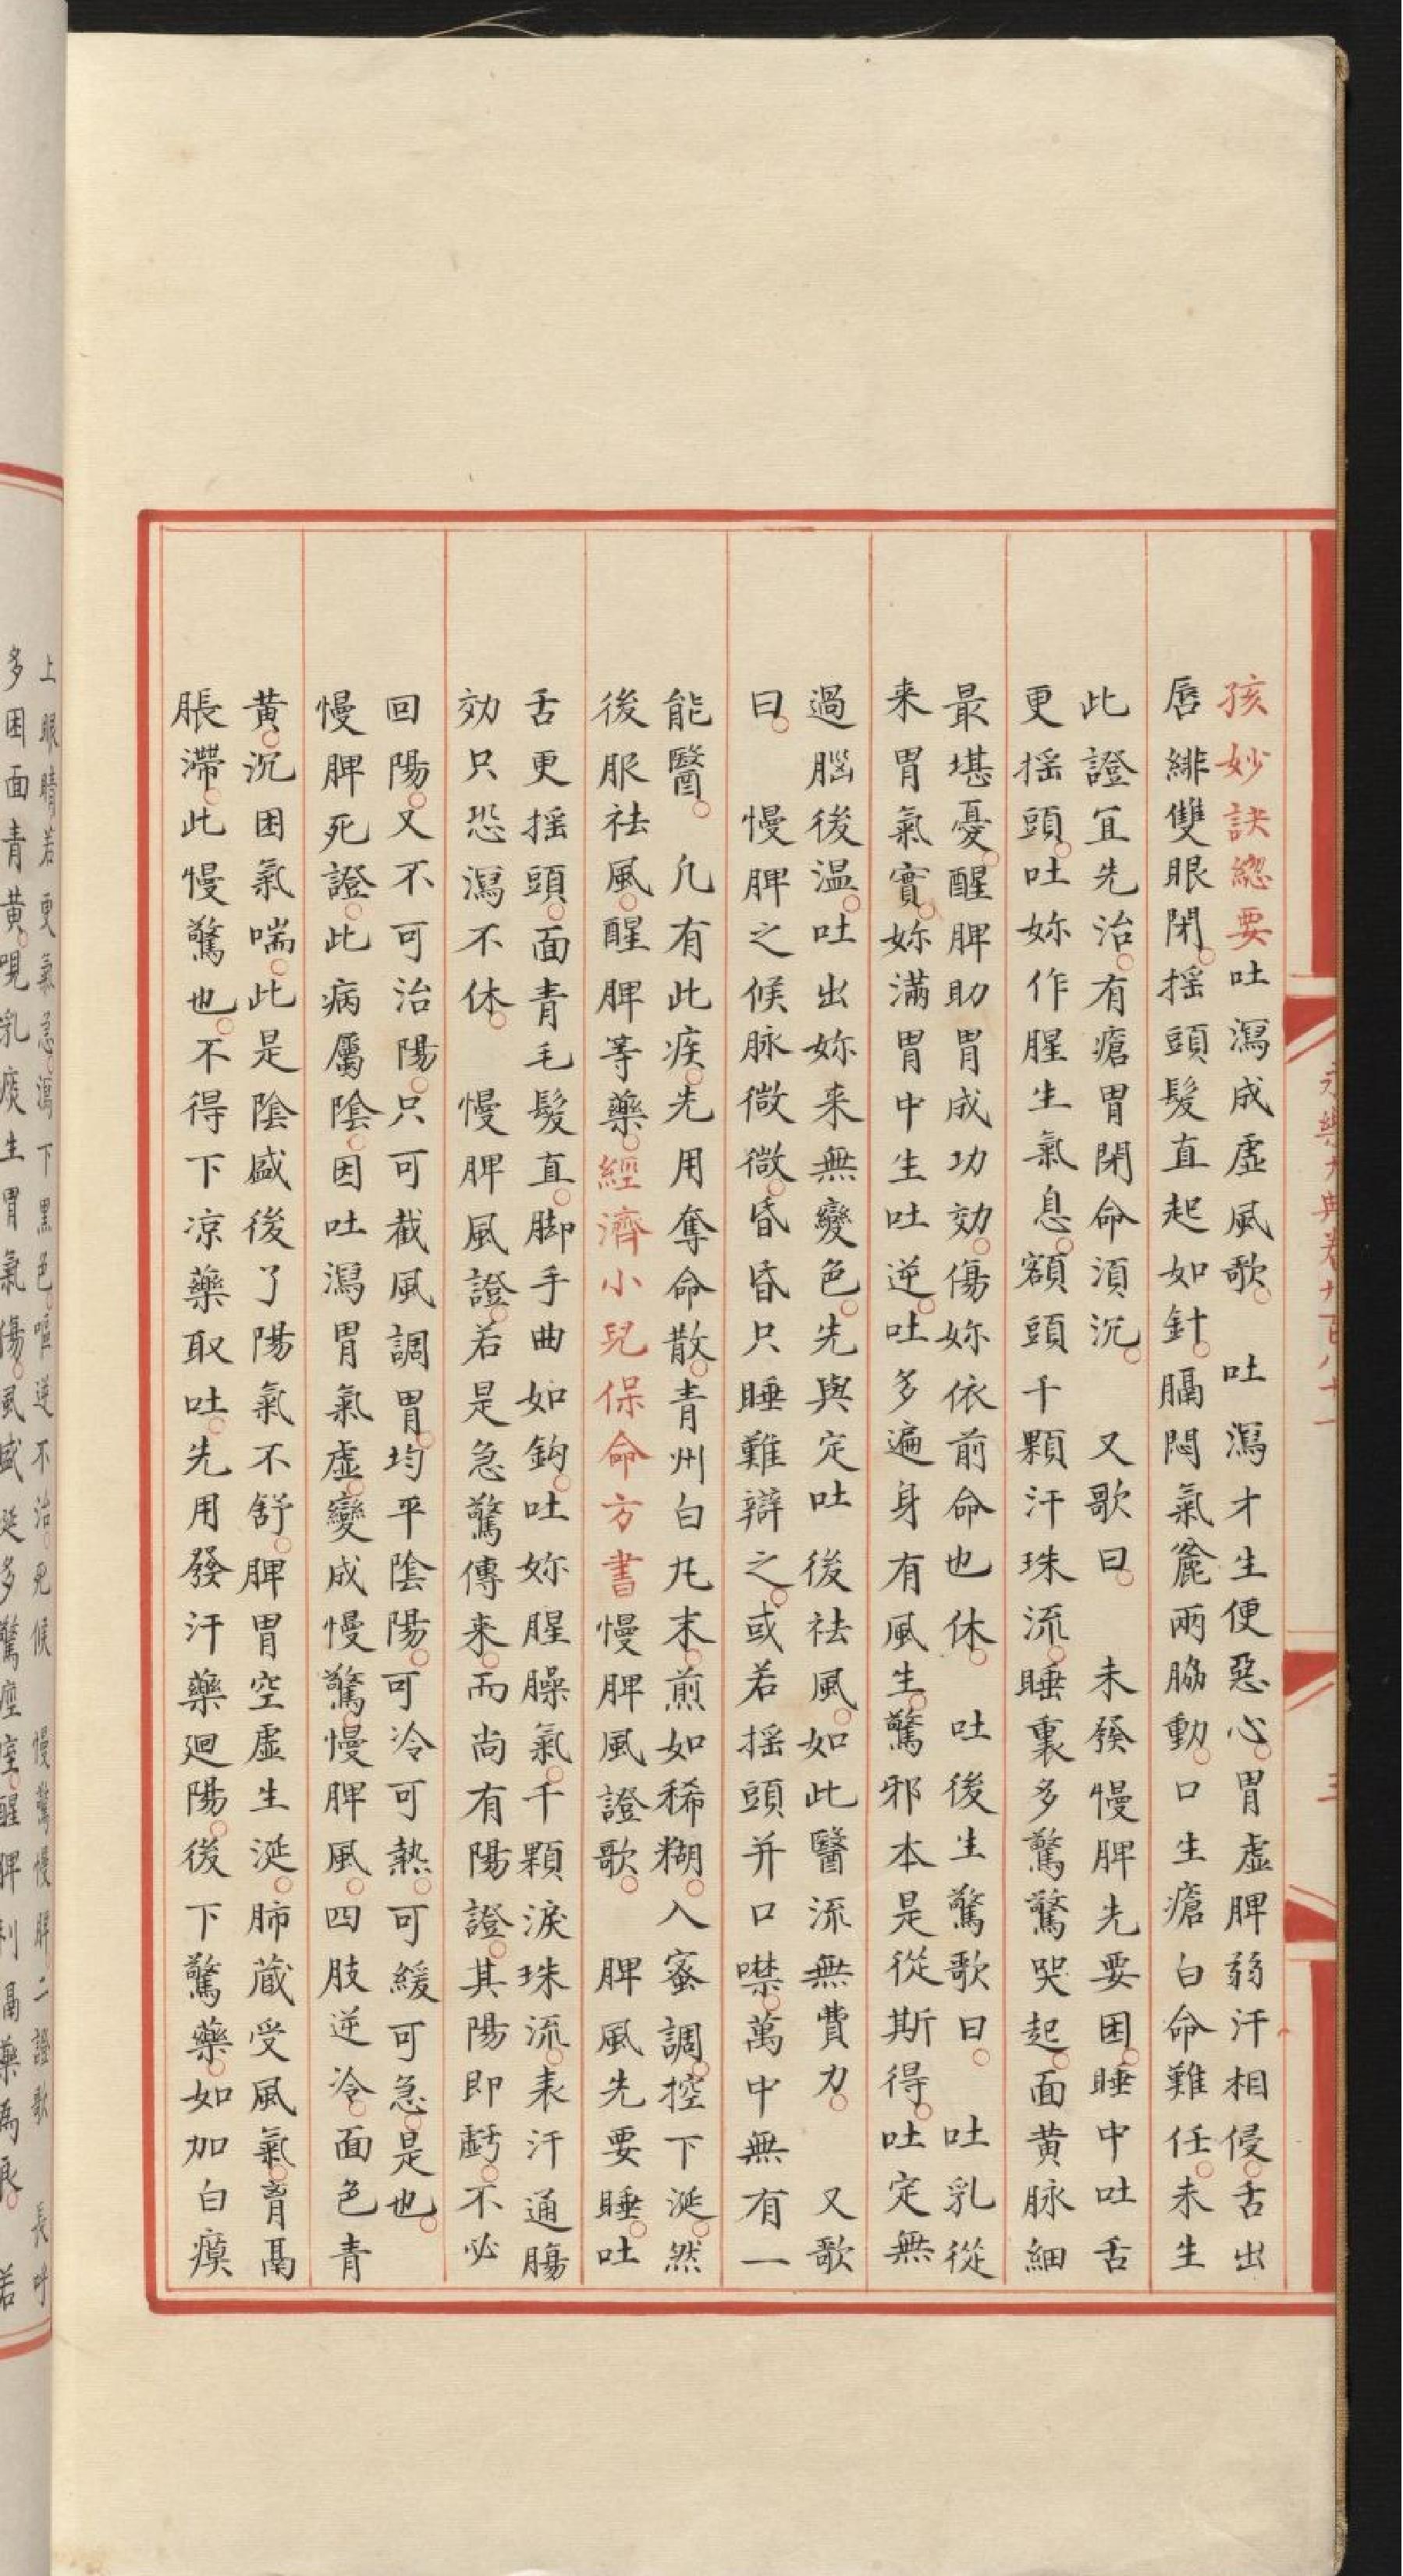 孩妙訣緫要吐瀉成虛風歌。 吐瀉才生便惡心。胃虛脾弱汗相侵。舌出
唇緋雙眼閉。揺頭髮直起如針。膈悶氣麄兩脇動。口生瘡白命難任。未生
此證宜先治。有瘡胃閉命湏沉。 又歌曰。 未發慢脾先要困。睡中吐舌
更揺頭。吐妳作腥生氣息。額頭千顆汗珠流。睡裏多驚驚哭起。面黄脉細
最堪憂。醒脾助胃成功效。傷妳依前命也休。 吐後生驚歌曰。 吐乳從
来胃氣實。妳滿胃中生吐逆。吐多遍身有風生。驚邪本是從斯得。吐定無
過腦後温。吐出妳来無變色。先與定吐後祛風。如此醫流無費力。 又歌
曰。 慢脾之候脉微微。昏昏只睡難辯之。或若揺頭并口噤。萬中無有一
能醫。 凢有此疾。先用奪命散。青州白丸末。煎如稀糊。入蜜調。控下涎。然
後服祛風。醒脾等藥。經濟小兒保命方書慢脾風證歌。 脾風先要睡。吐
舌更揺頭。面青毛髮直。脚手曲如鈎。吐妳腥臊氣。千顆淚珠流。表汗通腸
効只恐瀉不休。 慢脾風證。若是急驚傳来。而尚有陽證。其陽即虧。不必
回陽。又不可治陽。只可截風調胃。均平陰陽。可冷可熱。可緩可急。是也。
慢脾死證。此病屬陰。因吐瀉胃氣虛。變成慢驚。慢脾風。四肢逆冷。面色青
黄。沉困氣喘。此是陰盛後了陽氣不舒。脾胃空虛生涎。肺蔵受風氣。胷鬲
脹滯。此慢驚也。不得下凉藥取吐。先用發汗藥廻陽。後下驚藥。如加白瘼